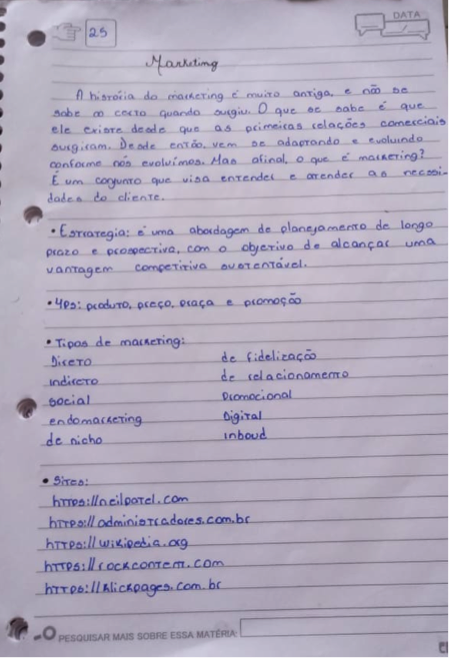 25
DATA
Marketing
A história do marketing é muito antiga, e não se
sabe ao certo quando surgiu. O que se sabe é que
ele existe desde que as primeiras relações comerciais
surgiram. Desde então, vem se adaptando e evoluindo
conforme nós evoluímos. Mas afinal, o que é marketing?
É um conjunto que visa entender e atender as necessi-
dades do cliente.
• Estratégia: é uma abordagem de planejamento de longo
prazo e prospectiva, com o objetivo de alcançar uma
vantagem competitiva sustentável.
• 4Ps: produto, preço, praça e promoção
• Tipos de marketing:
Direto de fidelização
indireto de relacionamento
social Promocional
endomarketing Digital
de nicho inboud
• Sites:
https://neilpatel.com
https://administradores.com.br
https://wikipedia.org
https://rockcontent.com
https://klickpages.com.br
PESQUISAR MAIS SOBRE ESSA MATÉRIA: